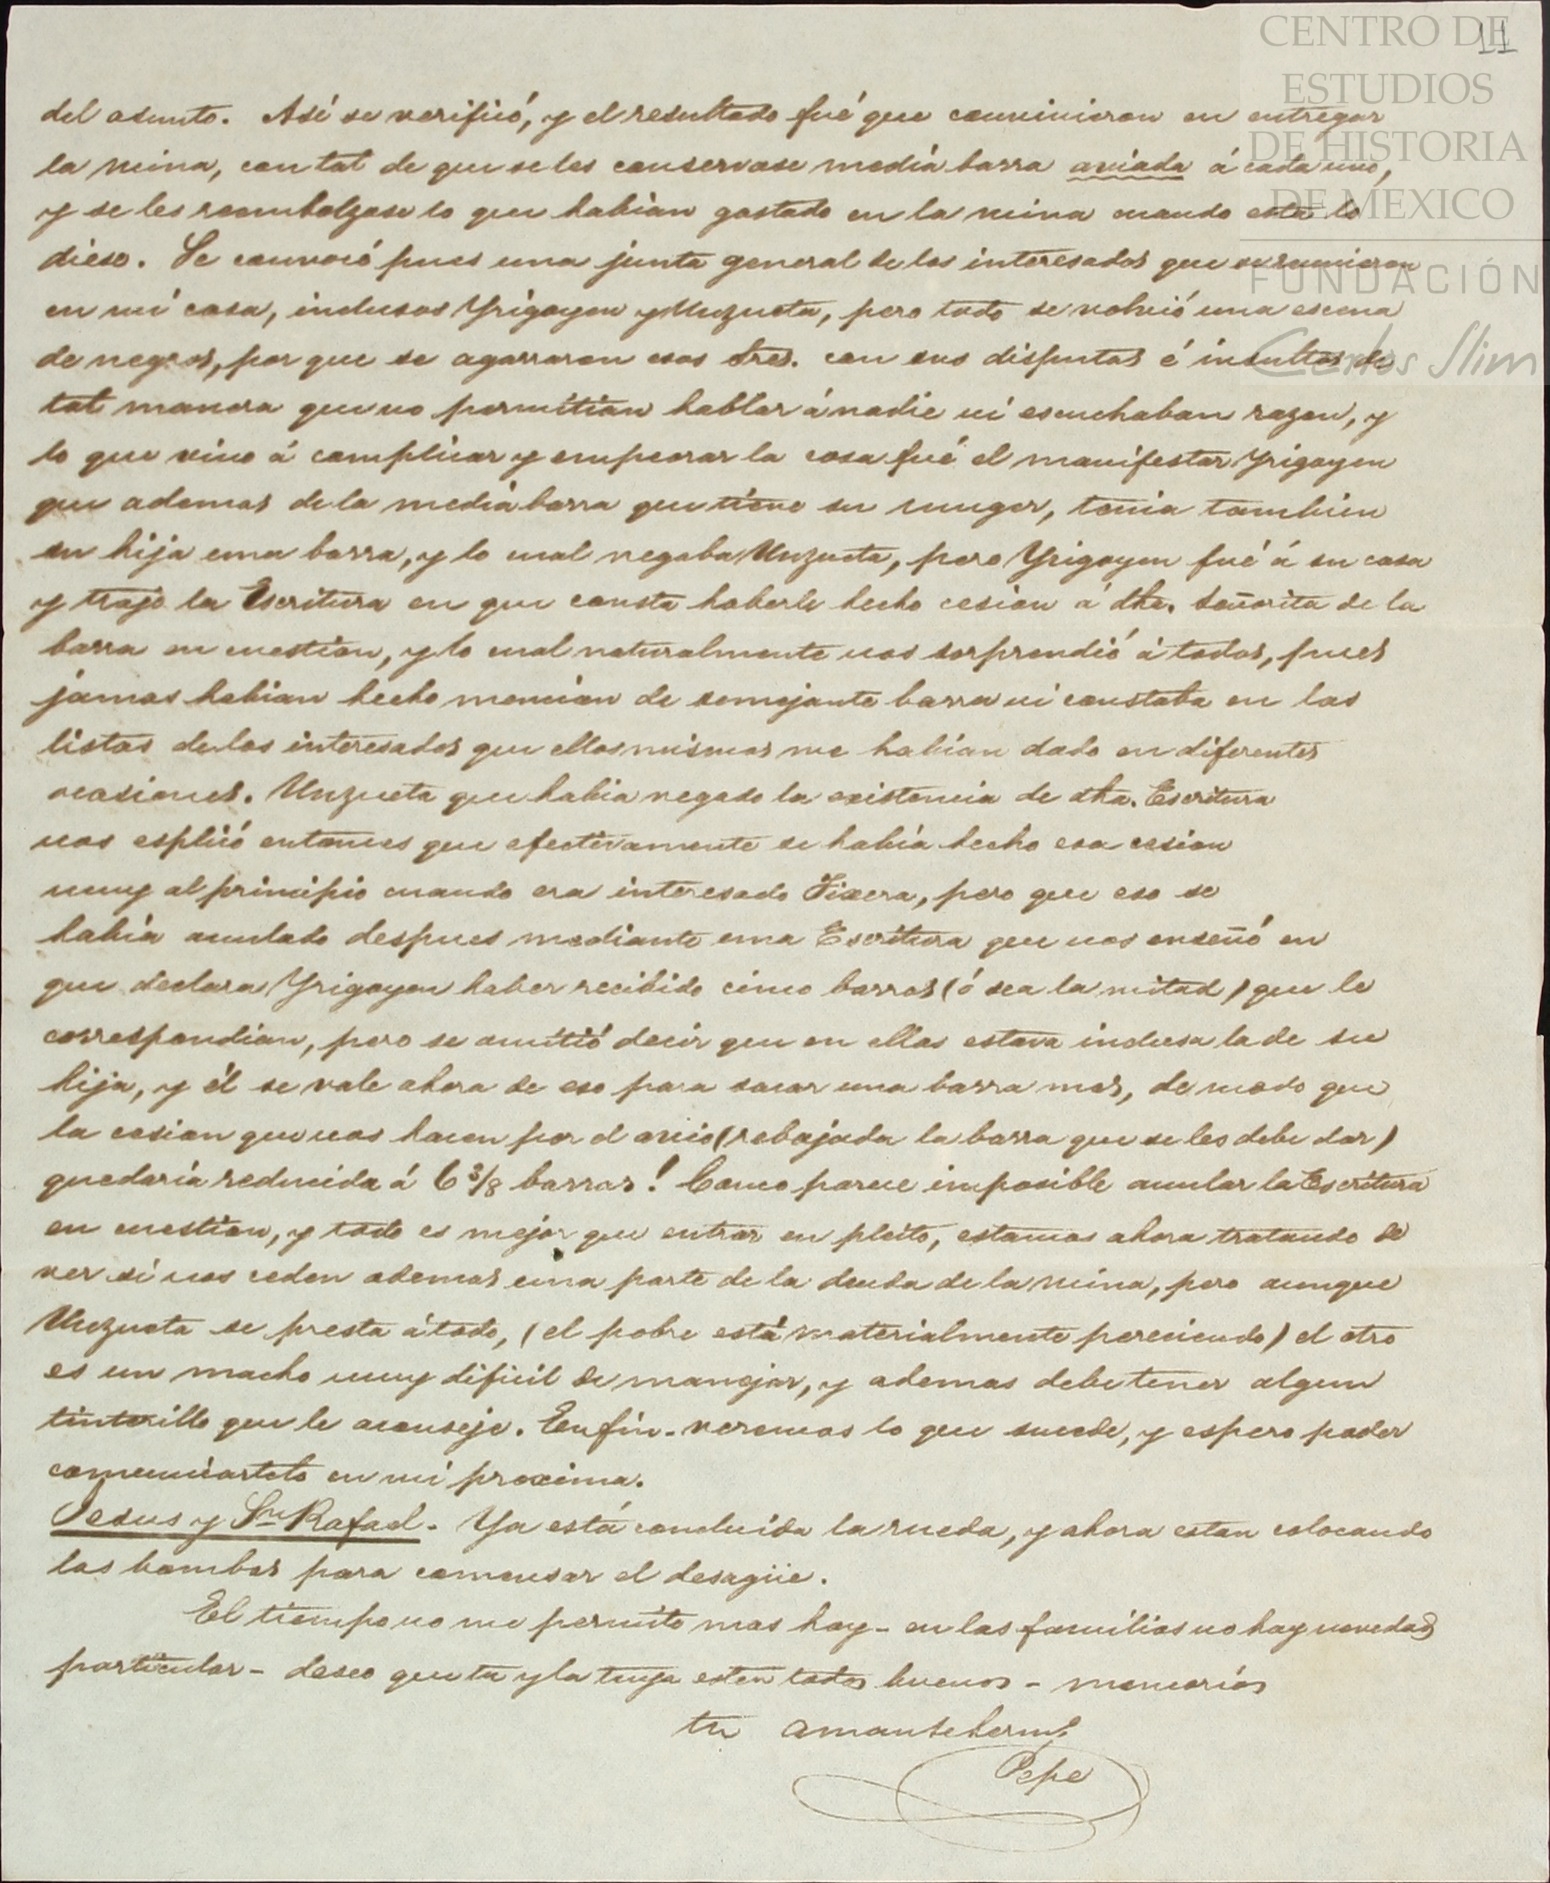 CENTRO DE
ESTUDIOS
DE HISTORIA
DE MEXICO
FUNDACIÓN
Carlos Slim
11
del asunto. Asi se verificó, y el resultado fué que convinieron en entregar
la mina, con tal de que se les conservase media barra aviada á cada uno,
y se les reembolzase lo que habian gastado en la mina cuando esta lo
diese. Se convocó pues una junta general de los interesados que se reunieron
en mi casa, inclusos Yrigoyen y Unzueta, pero todo se volvió una escena
de negros, por que se agarraron esos Sres. con sus disputas é insultos de
tal manera que no permitian hablar á nadie ni escuchaban razon, y
lo que vino á complicar y empeorar la cosa fué el manifestar Yrigoyen
que ademas de la media barra que tiene su muger, tenia tambien
su hija una barra, y lo cual negaba Unzueta, pero Yrigoyen fué á su casa
y trajo la Escritura en que consta haberle hecho cesion á dha. Señorita de la
barra en cuestion, y lo cual naturalmente nos sorprendió á todos, pues
jamas habian hecho mencion de semejante barra ni constaba en las
listas de los interesados que ellos mismos me habian dado en diferentes
ocasiones. Unzueta que habia negado la existencia de dha. Escritura
nos esplicó entonces que efectivamente se habia hecho esa cesion
muy al principio cuando era interesado Tixera, pero que eso se
habia anulado despues mediante una Escritura que nos enseñó en
que declara Yrigoyen haber recibido cinco barras (ó sea la mitad) que le
correspondian, pero se omitió decir que en ellas estava inclusa la de su
hija, y él se vale ahora de eso para sacar una barra mas, de modo que
la cesion que nos hacen por el avio (rebajada la barra que se les debe dar)
quedaria reducida á 6 3/8 barras! Como parece imposible anular la Escritura
en cuestion, y todo es mejor que entrar en pleito, estamos ahora tratando de
ver si nos ceden ademas una parte de la deuda de la mina, pero aunque
Unzueta se presta á todo, (el pobre está materialmente pereciendo) el otro
es un macho muy dificil de manejar, y ademas debe tener algun
tinterillo que le aconseje. En fin - veremos lo que sucede, y espero poder
comunicartelo en mi proxima.
Jesus y Sn Rafael - Ya está concluida la rueda, y ahora estan colocando
las bombas para comensar el desagüe.
El tiempo no me permite mas hoy - en las familias no hay novedad
particular - deseo que tu y la tuya esten todos buenos - memorias
tu amante hermo.
Pepe